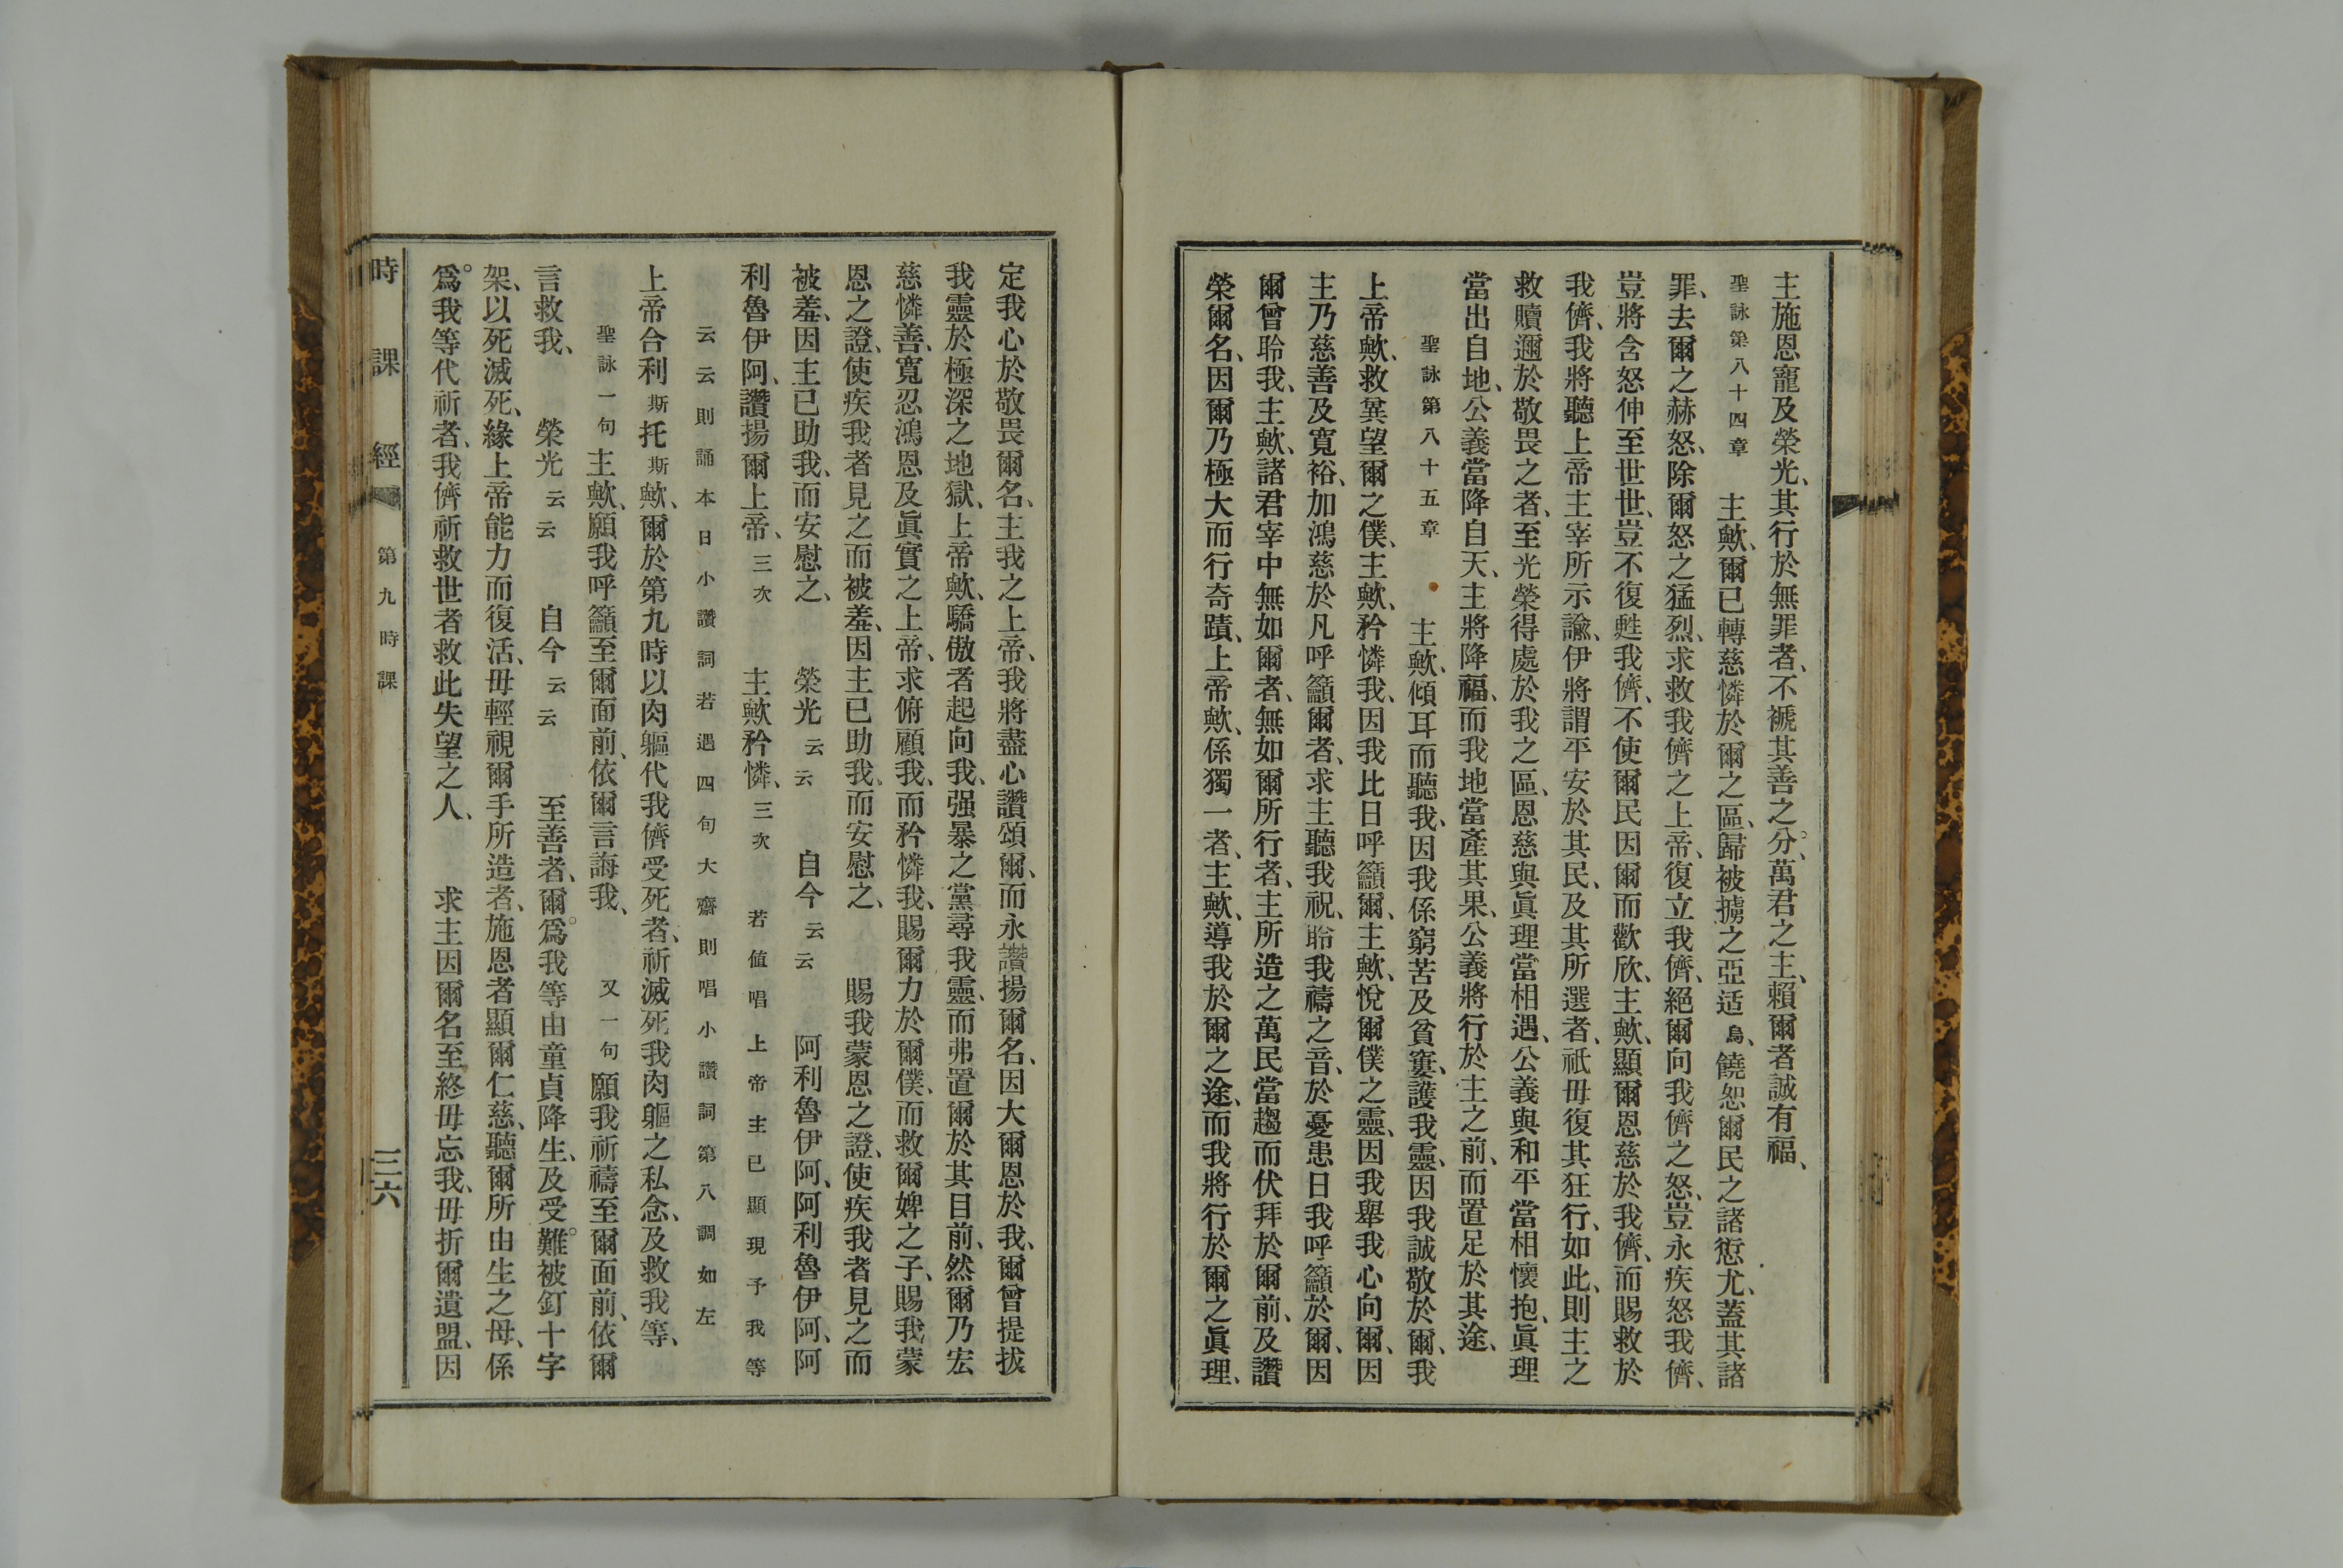 主施恩寵及榮光、其行於無罪者、不褫其善之分、萬君之主、賴爾者誠有福、
聖詠第八十四章　主歟、爾已轉慈憐於爾之區、歸被擄之亞适烏、饒恕爾民之諸愆尤、蓋其諸
罪、去爾之赫怒、除爾怒之猛烈、求救我儕之上帝、復立我儕、絕爾向我儕之怒、豈永疾怒我儕、
豈將含怒伸至世世、豈不復甦我儕、不使爾民因爾而歡欣、主歟、顯爾恩慈於我儕、而賜救於
我儕、我將聽上帝主宰所示諭、伊將謂平安於其民、及其所選者、祇毋復其狂行、如此、則主之
救贖邇於敬畏之者、至光榮得處於我之區、恩慈與眞理當相遇、公義與和平當相懷抱、眞理
當出自地、公義當降自天、主將降福、而我地當產其果、公義將行於主之前、而置足於其途、
聖詠第八十五章　主歟、傾耳而聽我、因我係窮苦及貧窶、護我靈、因我誠敬於爾、我
上帝歟、救兾望爾之僕、主歟、矜憐我、因我比日呼籲爾、主歟、悅爾僕之靈、因我舉我心向爾、因
主乃慈善及寬裕、加鴻慈於凡呼籲爾者、求主聽我祝、聆我禱之音、於憂患日我呼籲於爾、因
爾曾聆我、主歟、諸君宰中無如爾者、無如爾所行者、主所造之萬民當趨而伏拜於爾前、及讚
榮爾名、因爾乃極大而行奇蹟、上帝歟、係獨一者、主歟、導我於爾之途、而我將行於爾之眞理、
定我心於敬畏爾名、主我之上帝、我將盡心讚頌爾、而永讚揚爾名、因大爾恩於我、爾曾提拔
我靈於極深之地獄、上帝歟、驕傲者起向我、强暴之黨尋我靈、而弗置爾於其目前、然爾乃宏
慈憐善、寬忍鴻恩及眞實之上帝、求俯顧我、而矜憐我、賜爾力於爾僕、而救爾婢之子、賜我蒙
恩之證、使疾我者見之而被羞、因主已助我、而安慰之、　賜我蒙恩之證、使疾我者見之而
被羞、因主已助我、而安慰之、　榮光云云　自今云云　阿利魯伊阿、阿利魯伊阿、阿
利魯伊阿、讚揚爾上帝、三次　主歟矜憐、三次　若値唱上帝主已顯現予我等
云云則誦本日小讚詞若遇四句大齋則唱小讚詞第八調如左
上帝合利斯托斯歟、爾於第九時以肉軀代我儕受死者、祈滅死我肉軀之私念、及救我等、
聖詠一句主歟、願我呼籲至爾面前、依爾言誨我、　又一句願我祈禱至爾面前、依爾
言救我、　榮光云云　自今云云　至善者、爾爲我等由童貞降生、及受難、被釘十字
架、以死滅死、緣上帝能力而復活、毋輕視爾手所造者、施恩者顯爾仁慈、聽爾所由生之母、係
爲我等代祈者、我儕祈救世者救此失望之人、　求主因爾名至終毋忘我、毋折爾遺盟、因
時課經　第九時課　三六